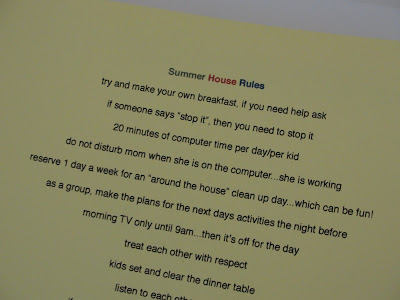 Summer House Rules
try and make your own breakfast, if you need help ask
if someone says "stop it", then you need to stop it
20 minutes of computer time per day/per kid
do not disturb mom when she is on the computer...she is working
reserve 1 day a week for an "around the house" clean up day...which can be fun!
as a group, make the plans for the next days activities the night before
morning TV only until 9am...then it's off for the day
treat each other with respect
kids set and clear the dinner table
listen to each